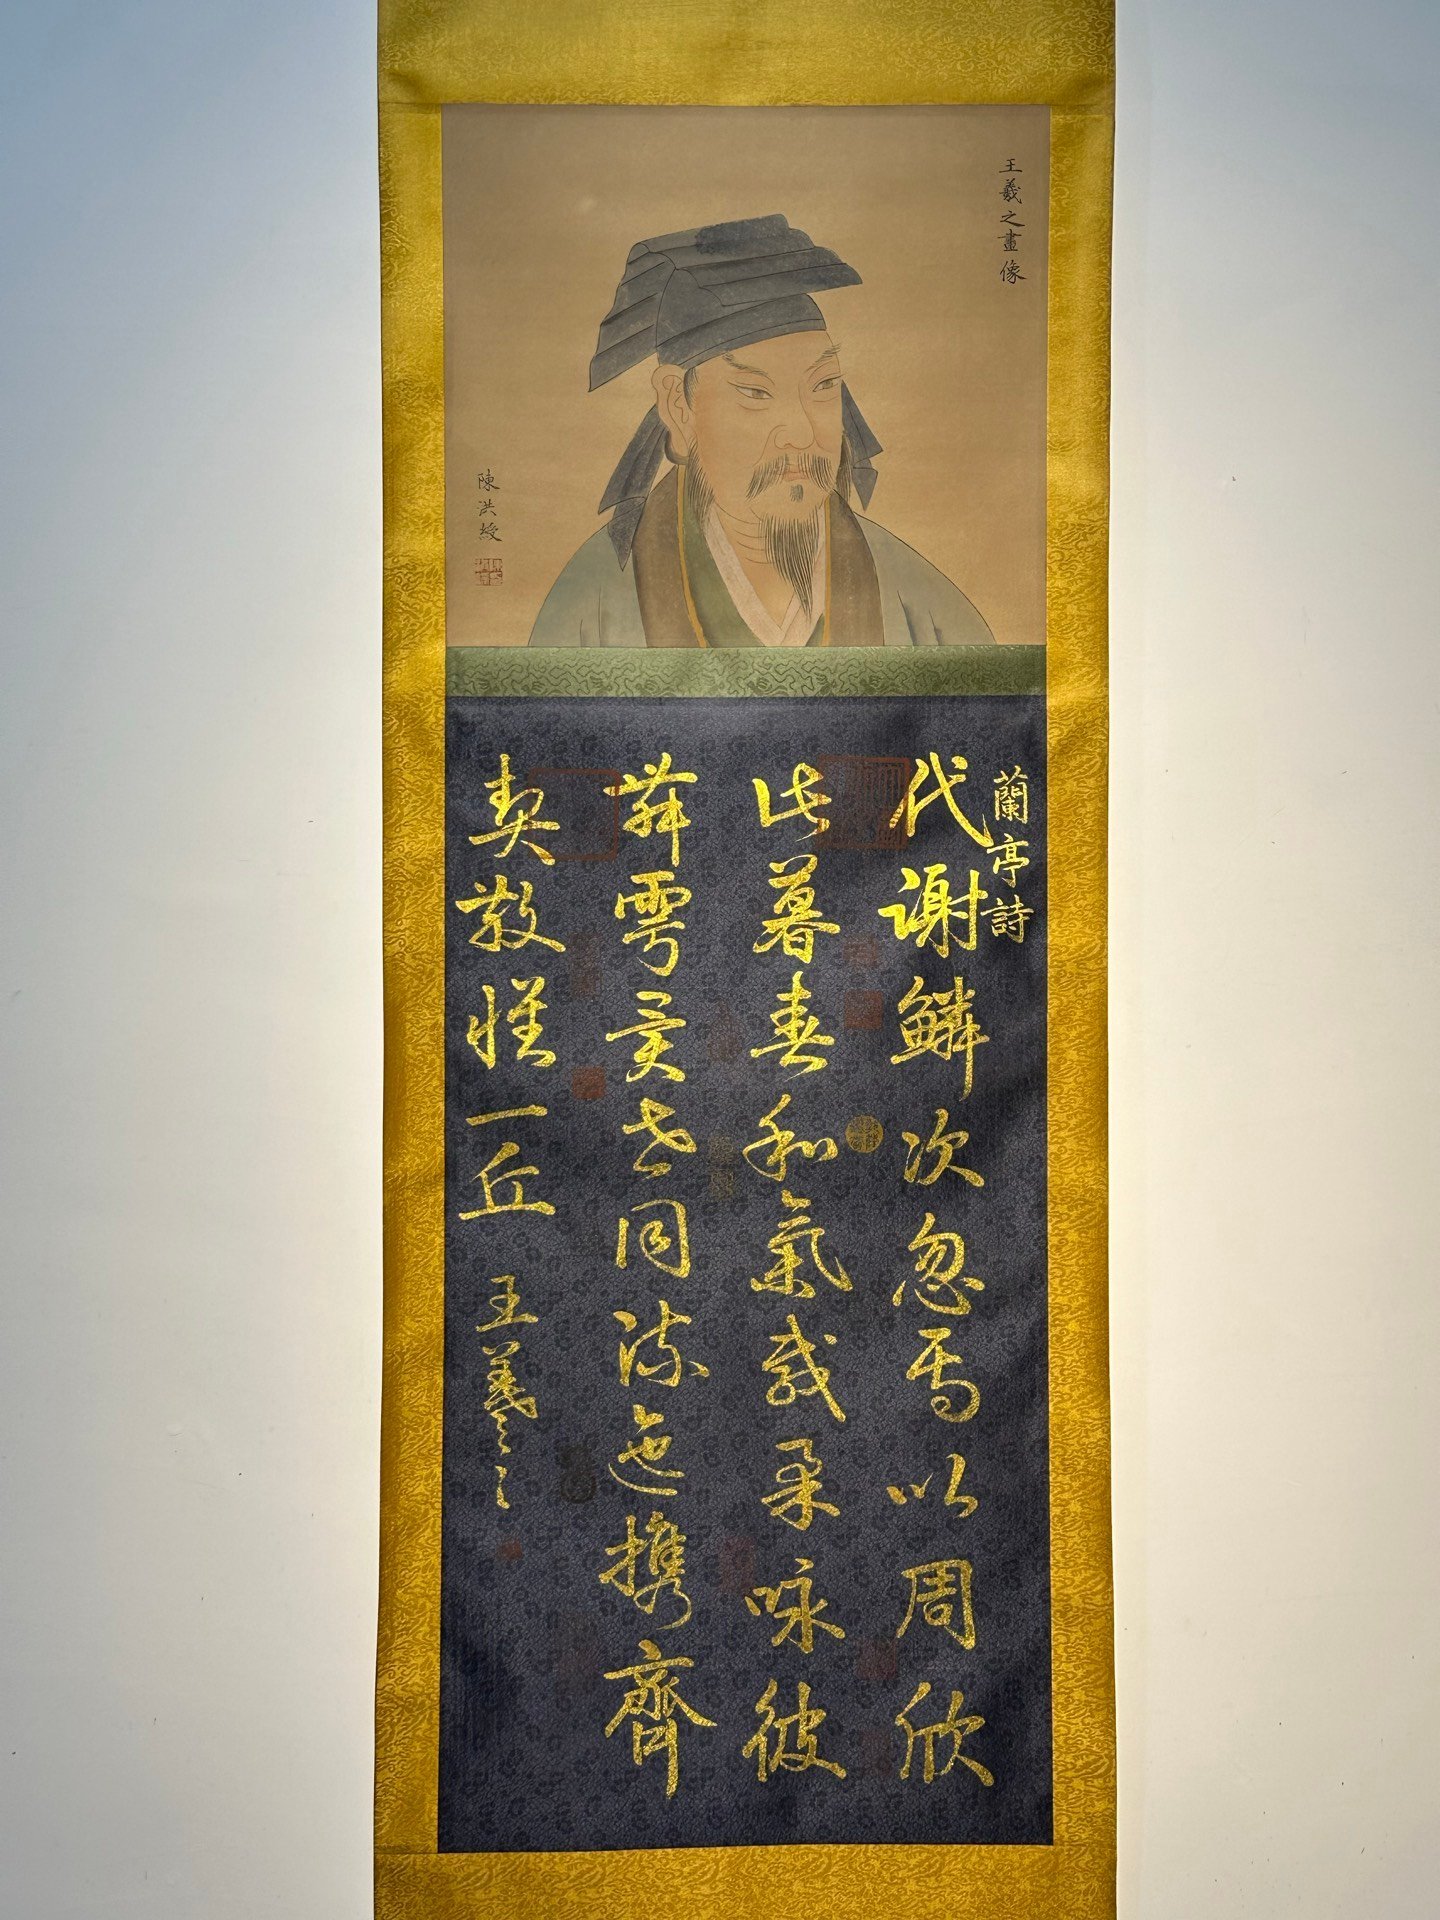 王羲之畫像
陳洪綬
蘭亭詩
代謝鱗次忽焉以周欣
此暮春和氣載柔咏彼
舞雩異世同流迺携齊
契散懷一丘
王羲之